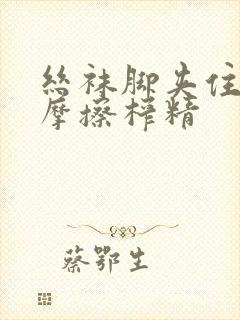 丝袜脚夹住
摩擦榨精
蔡鄂生